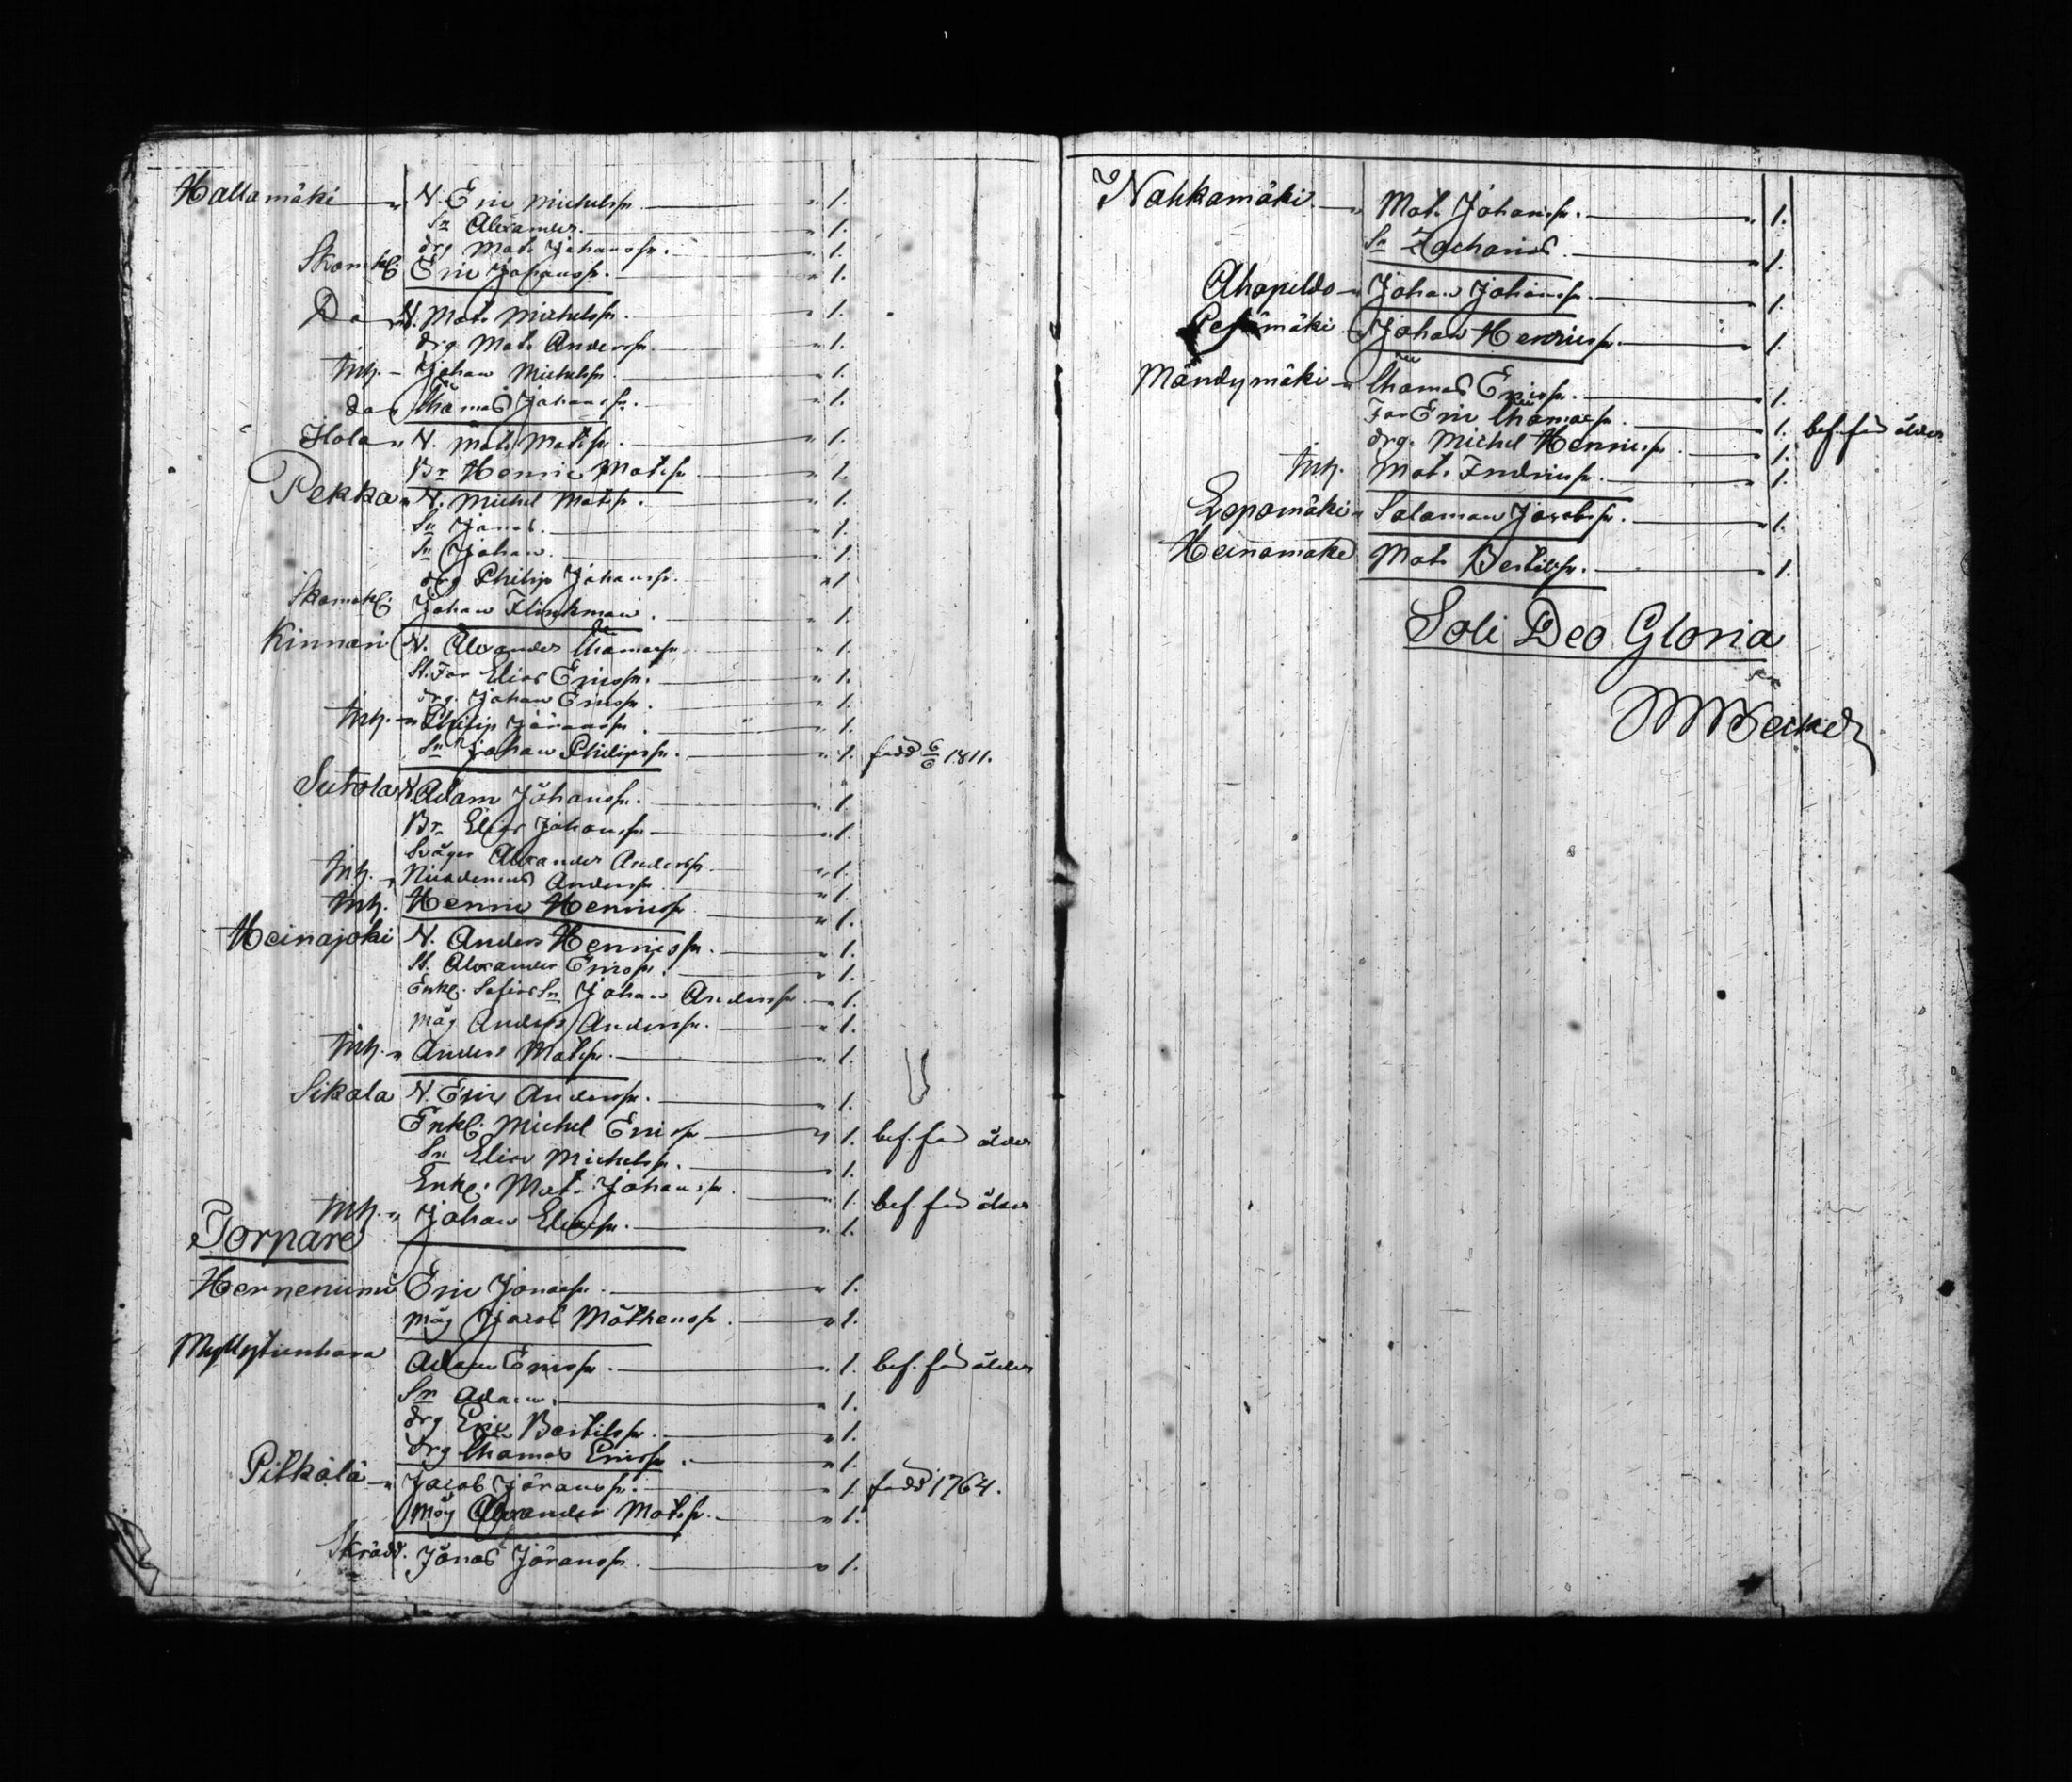 Hallamäki — N. Eric Michelss. — " 1.
Sn Alexander. — " 1.
drg Mats Johanss. — " 1.
Skomak. Eric Johanss. — " 1.
Do N. Mats Michelss. — " 1.
drg Mats Anderss. — " 1.
Inh. — Johan Michelss. — " 1.
do " Thomas Johanss. — " 1.
Ilola " N. Mats Matss. — " 1.
Br Henric Matss. — " 1.
Pekka " N. Michel Matss. — " 1.
Sn Jonas. — " 1.
Sn Johan. — " 1.
drg Philip Johanss. " 1
Skomak. Johan Flinkman. — " 1.
Kinnari N. Alexander Thomass. — " 1.
St. Far Elias Ericss. — " 1.
drg. Johan Ericss. — " 1.
Inh. — " Philip Jöranss. — " 1.
Sn Johan Philipss. — " 1. född 6/6 1811.
Sutola N. Adam Johanss. — " 1.
Br. Elias Johanss. — " 1.
Svåger Alexander Anderss. — " 1.
Inh. — Nicodemus Anderss. — " 1.
Inh. Henric Henricss. — " 1.
Heinajoki N. Anders Henricss. — " 1.
St. Alexander Ericss. — " 1.
Enkl. Sn Johan Anderss. — " 1.
Måg Anders Anderss. — " 1.
Inh. — " Anders Matss. — " 1.
Sikala N. Eric Anderss. — " 1.
Enkl. Michel Ericss — " 1. bef. för ålder
Sn Elias Michelss. — " 1.
Enkl. Mats Johanss. — " 1. bef. för ålder
Inh. — " Johan Eliass. — " 1.
Torpare
Herneniemi Eric Jonass. — " 1.
Måg Jacob Mathenss. — " 1.
Adam Ericss. — " 1. bef. för ålder
Sn Adam. — " 1.
drg Eric Bertilss. — " 1.
drg Thomas Ericss. — " 1.
Pitkälä — " Jacob Jöranss. — " 1. född 1764.
Måg Alexander Matss. — " 1.
Skrädd. Jonas Jöranss. — " 1.
Nahkamäki — " Mats Johanss. — " 1.
Sn Zacharias. — " 1.
Ahopeldo — " Johan Johanss. — " 1.
Johan Henricss. — " 1.
Mändymäki — " Thomas Ericss. — " 1.
Far Eric Thomass. — " 1. bef. för ålder
drg. Michel Henricss. — " 1.
Inh. Mats Indricss. — " 1.
Lepomäki " Salamon Jacobss. — " 1.
Heinamäki Mats Bertilss. — " 1.
Soli Deo Gloria